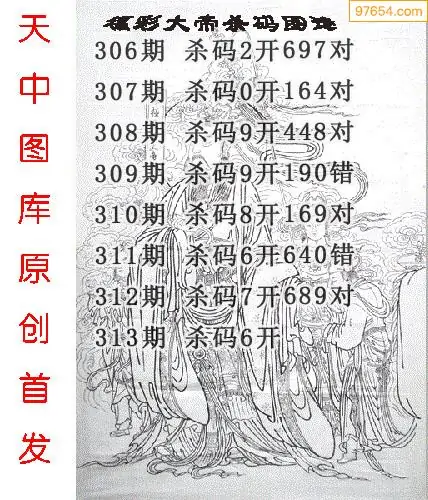 97654.com
福彩大帝杀码图谜
306期 杀码2开697对
307期 杀码0开164对
308期 杀码9开448对
309期 杀码9开190错
310期 杀码8开169对
311期 杀码6开640错
312期 杀码7开689对
313期 杀码6开
天中图库原创首发